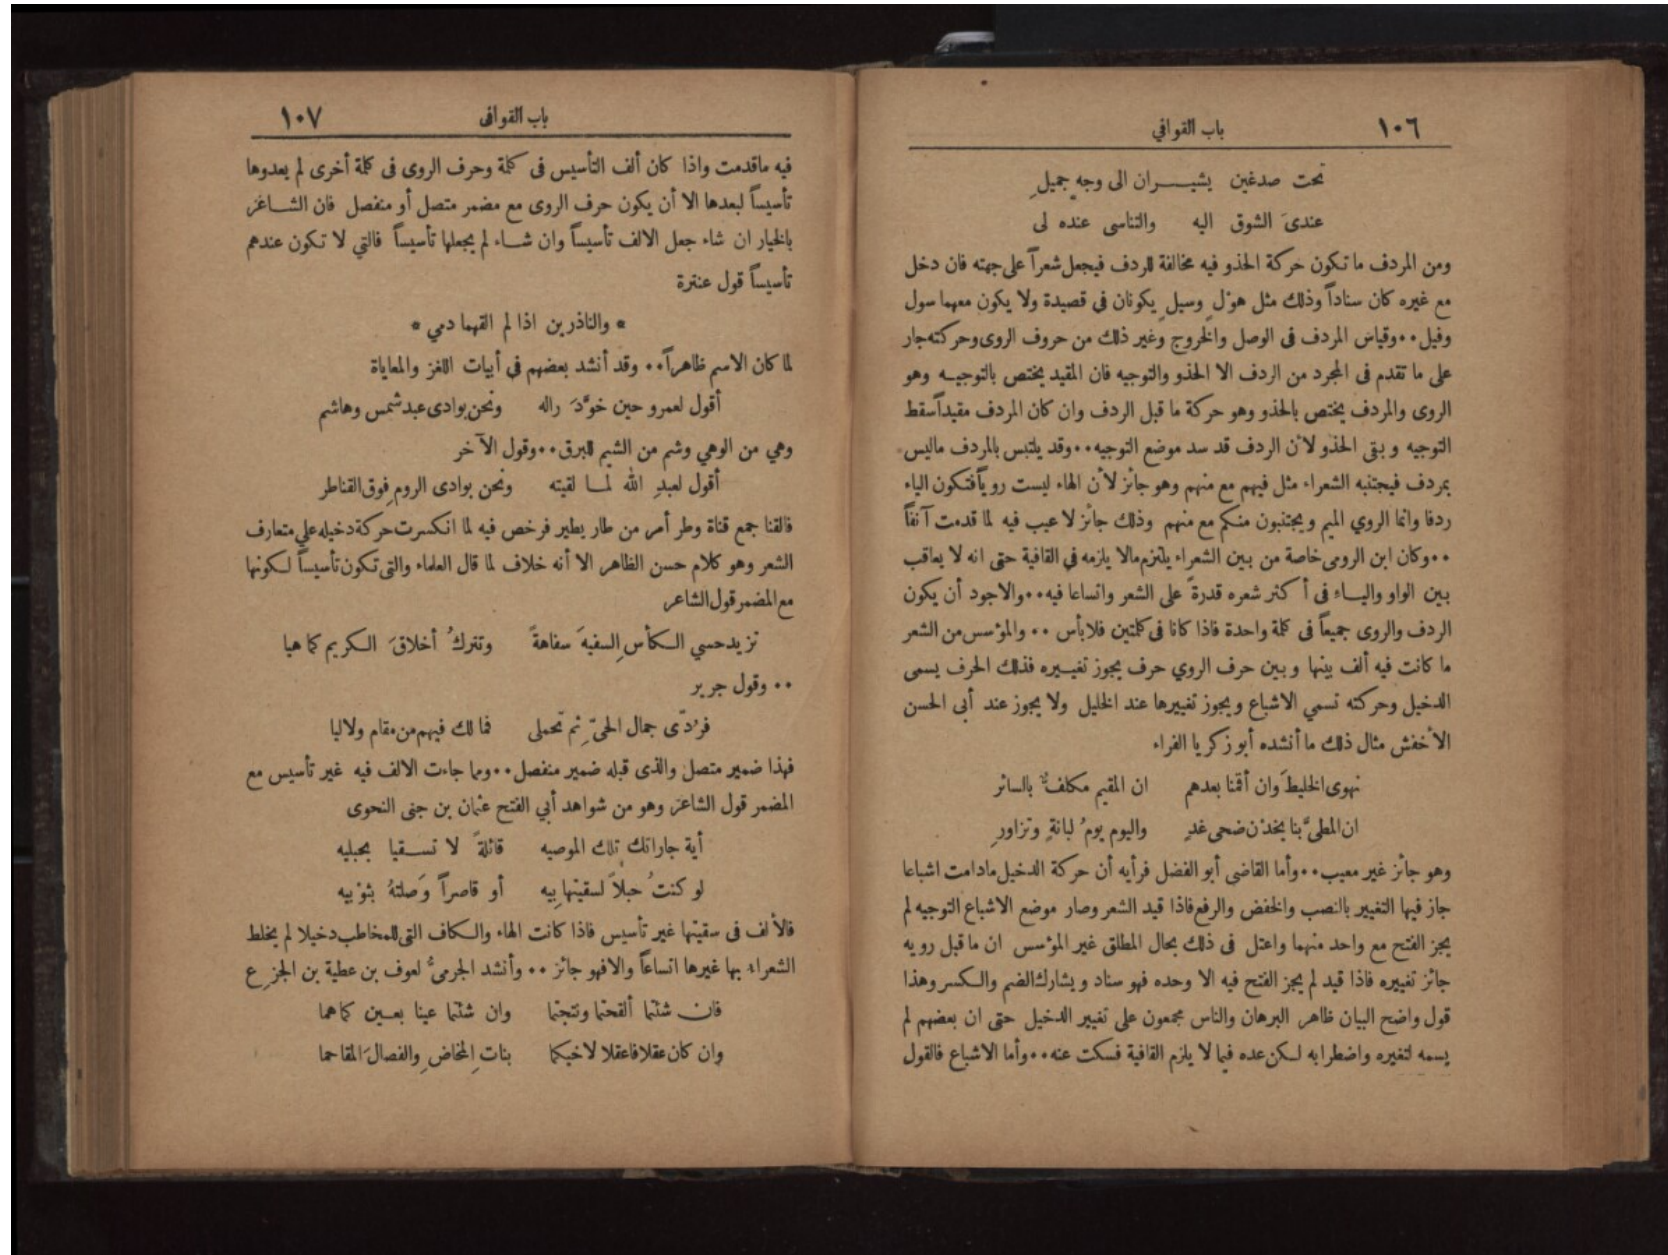 ١٠٦
باب القوافي
تحت صدغين يشيــــران الى وجهٍ جميلِ
عندىَ الشوق اليه والتناسى عنده لى
ومن المردف ما تكون حركة الحذو فيه مخالفة للردف فيجعل شعراً على جهته فان دخل
مع غيره كان سناداً وذلك مثل هوْلٍ وسيلٍ يكونان في قصيدة ولا يكون معهما سول
وفيل ٠٠ وقياس المردف فى الوصل والخروج وغير ذلك من حروف الروى وحركته جار
على ما تقدم فى المجرد من الردف الا الحذو والتوجيه فان المقيد يختص بالتوجيـه وهو
الروى والمردف يختص بالحذو وهو حركة ما قبل الردف وان كان المردف مقيداً سقط
التوجيه وبقى الحذو لأن الردف قد سد موضع التوجيه ٠٠ وقد يلتبس بالمردف ماليس
بمردف فيجتنبه الشعراء مثل فيهم مع منهم وهو جائز لأن الهاء ليست روياً فتكون الياء
ردفا وانما الروي الميم ويجتنبون منكم مع منهم وذلك جائز لا عيب فيه لما قدمت آنفاً
٠٠ وكان ابن الرومى خاصة من بين الشعراء يلتزم مالا يلزمه في القافية حتى انه لا يعاقب
بين الواو واليـاء فى أكثر شعره قدرةً على الشعر واتساعا فيه ٠٠ والاجود أن يكون
الردف والروى جميعاً فى كلمة واحدة فاذا كانا فى كلمتين فلا بأس ٠٠ والمؤسس من الشعر
ما كانت فيه ألف بينها وبين حرف الروي حرف يجوز تغيـيره فذلك الحرف يسمى
الدخيل وحركته تسمي الاشباع ويجوز تغييرها عند الخليل ولا يجوز عند أبى الحسن
الأخفش مثال ذلك ما أنشده أبو زكريا الفراء
نهوى الخليطَ وان أقمنا بعدهم ان المقيم مكلفٌ بالسائر
ان المطىَّ بنا يخدْن ضحى غدٍ واليوم يومُ لبانةٍ وتزاورِ
وهو جائز غير معيب ٠٠ وأما القاضى أبو الفضل فرأيه أن حركة الدخيل مادامت اشباعا
جاز فيها التغيير بالنصب والخفض والرفع فاذا قيد الشعر وصار موضع الاشباع التوجيه لم
يجز الفتح مع واحد منهما واعتل فى ذلك بحال المطلق غير المؤسس ان ما قبل رويه
جائز تغييره فاذا قيد لم يجز الفتح فيه الا وحده فهو سناد ويشارك الضم والكسر وهذا
قول واضح البيان ظاهر البرهان والناس مجمعون على تغيير الدخيل حتى ان بعضهم لم
يسمه لتغيره واضطرابه لكن عده فيما لا يلزم القافية فسكت عنه ٠٠ وأما الاشباع فالقول
باب القوافى
١٠٧
فيه ماقدمت واذا كان ألف التأسيس فى كلمة وحرف الروى فى كلمة أخرى لم يعدوها
تأسيساً لبعدها الا أن يكون حرف الروى مع مضمر متصل أو منفصل فان الشـاعر
بالخيار ان شاء جعل الالف تأسيساً وان شـاء لم يجعلها تأسيساً فالتي لا تكون عندهم
تأسيساً قول عنترة
* والناذرين اذا لم القهما دمي *
لما كان الاسم ظاهراً ٠٠ وقد أنشد بعضهم في أبيات اللغز والمعاياة
أقول لعمرو حين خوَّدَ راله ونحن بوادى عبد شمس وهاشم
وهي من الوهي وشم من الشيم للبرق ٠٠ وقول الآخر
أقول لعبدِ الله لمـا لقيته ونحن بوادى الروم فوق القناطر
فالقنا جمع قناة وطر أمر من طار يطير فرخص فيه لما انكسرت حركة دخيله علي متعارف
الشعر وهو كلام حسن الظاهر الا أنه خلاف لما قال العلماء والتى تكون تأسيساً لكونها
مع المضمر قول الشاعر
تزيد حسي الكأس السفيهَ سفاهةً وتتركُ أخلاقَ الكريم كما هيا
٠٠ وقول جرير
فرُدّى جمال الحىِّ ثم تحملى فما لك فيهم من مقام ولا ليا
فهذا ضمير متصل والذى قبله ضمير منفصل ٠٠ ومما جاءت الالف فيه غير تأسيس مع
المضمر قول الشاعر وهو من شواهد أبي الفتح عثمان بن جنى النحوى
أية جاراتك تلك الموصيه قائلةً لا تسـقيا بحبليه
لو كنتُ حبلاً لسقيتها بيه أو قاصراً وَصلتهُ بثوْبيه
فالألف فى سقيتها غير تأسيس فاذا كانت الهاء والكاف التى للمخاطب دخيلا لم يخلط
الشعراء بها غيرها اتساعاً والا فهو جائز ٠٠ وأنشد الجرمىُّ لعوف بن عطية بن الخرِع
فان شئتما ألقحتما ونتجتما وان شئتما عينا بعـين كما هما
وان كان عقلا فاعقلا لاخيكما بنات المخاض والفصال المقاحما